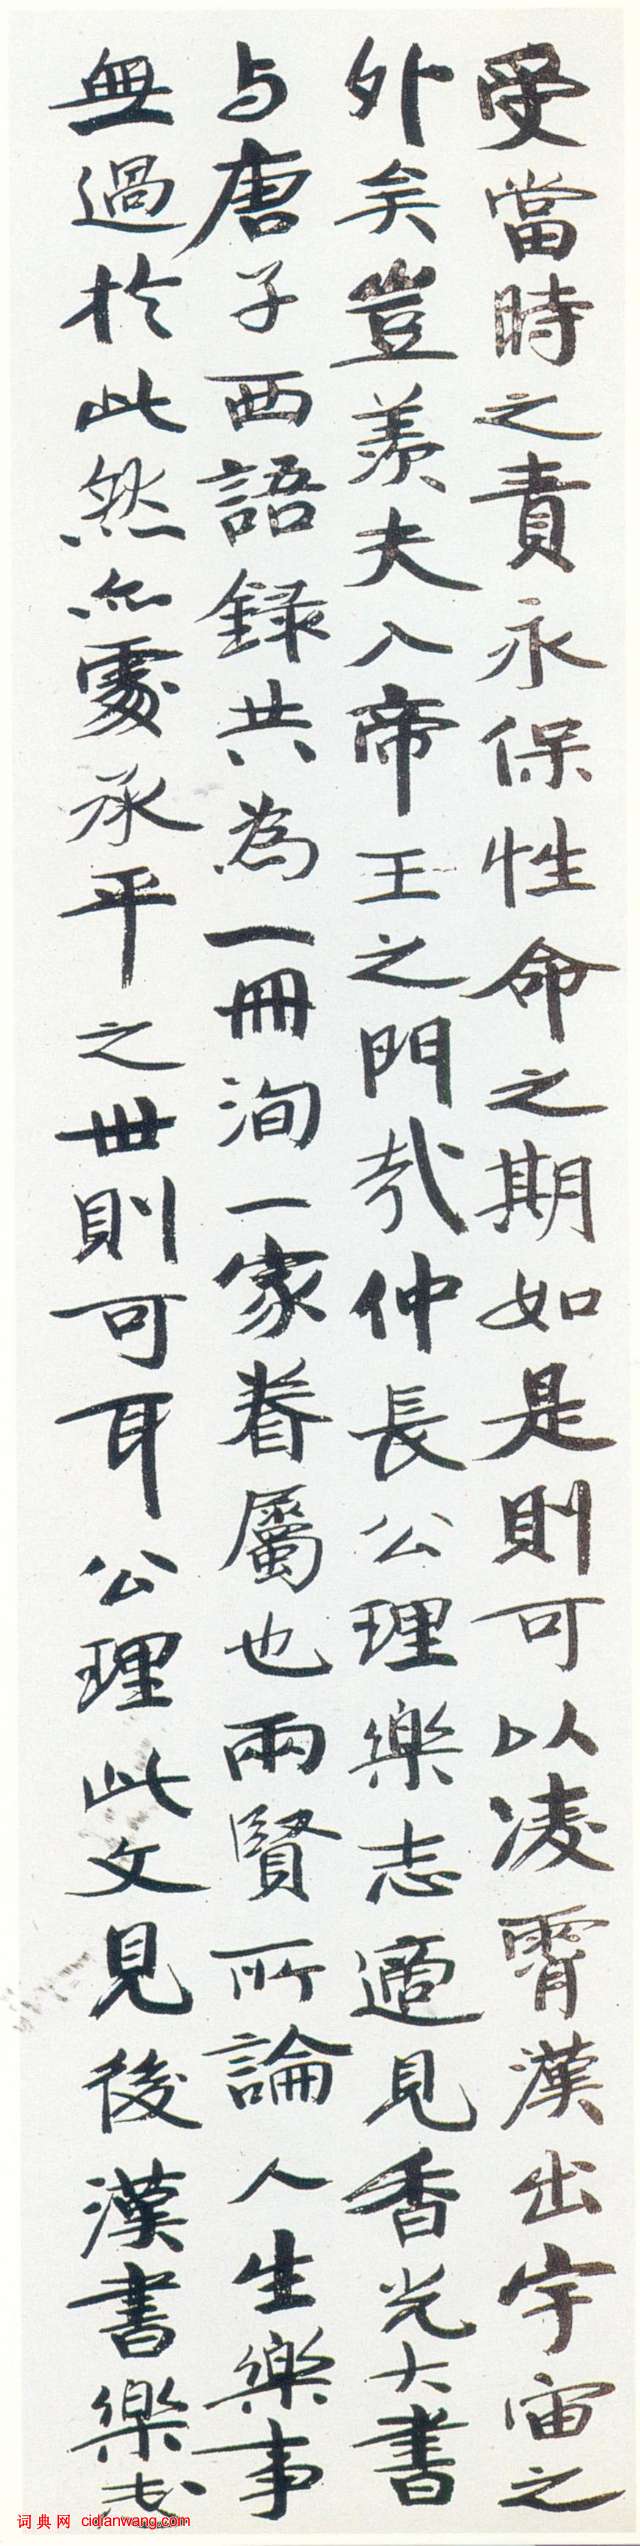 受當時之責永保性命之期如是則可以凌霄漢出宇宙之
外矣豈羨夫入帝王之門哉仲長公理樂志適見香光大書
与唐子西語録共為一冊洵一家眷屬也兩賢所論人生樂事
無過於此然亦須承平之世則可耳公理此文見後漢書樂志
词典网 cidianwang.com